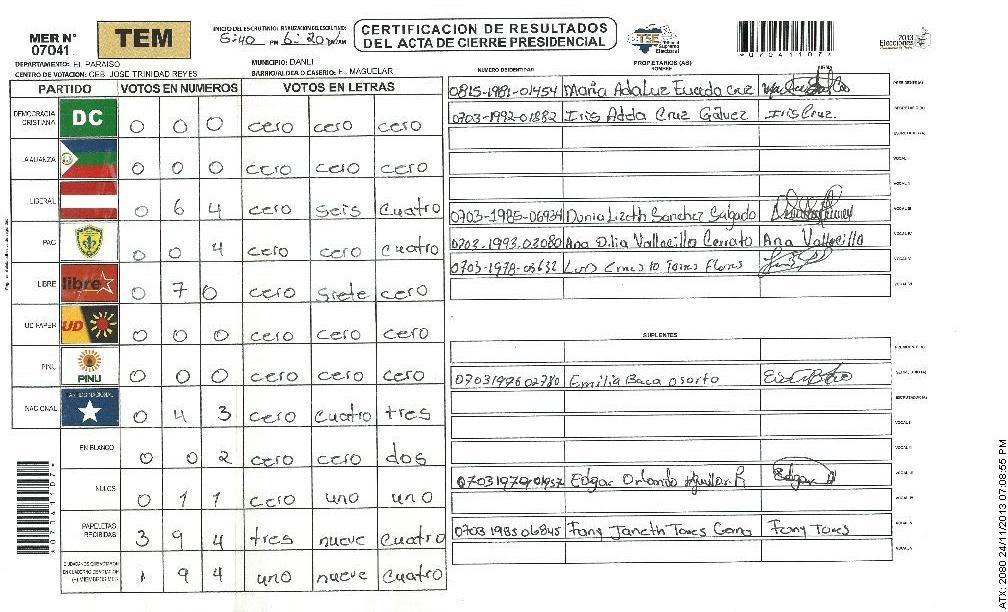 MER N° 07041
TEM
INICIO DEL ESCRUTINIO: FINALIZACION DEL ESCRUTINIO:
5:40 PM 6:20 PM/AM
CERTIFICACION DE RESULTADOS
DEL ACTA DE CIERRE PRESIDENCIAL
TSE
Tribunal Supremo Electoral
*07041107*
2013
Elecciones
DEPARTAMENTO: EL PARAISO
MUNICIPIO: DANLI
CENTRO DE VOTACION: CEB. JOSE TRINIDAD REYES
BARRIO/ALDEA O CASERIO: EL MAGUELAR
PARTIDO VOTOS EN NUMEROS VOTOS EN LETRAS
DEMOCRACIA CRISTIANA DC 0 0 0 cero cero cero
LA ALIANZA 0 0 0 cero cero cero
LIBERAL 0 6 4 cero seis cuatro
PAC 0 0 4 cero cero cuatro
LIBRE libre 0 7 0 cero siete cero
UD FAPER UD 0 0 0 cero cero cero
PINU PINU 0 0 0 cero cero cero
NACIONAL PARTIDO NACIONAL 0 4 3 cero cuatro tres
EN BLANCO 0 0 2 cero cero dos
NULOS 0 1 1 cero uno uno
PAPELETAS RECIBIDAS 3 9 4 tres nueve cuatro
1 9 4 uno nueve cuatro
PROPIETARIOS (AS)
NUMERO DE IDENTIDAD NOMBRE FIRMA
0815-1981-01454 Maria Adaluz Euceda Cruz PRESIDENTE(A)
0703-1992-01882 Iris Adda Cruz Gálvez Iris Cruz. SECRETARIO(A)
ESCRUTADOR(A)
VOCAL I
VOCAL II
0703-1985-06934 Dunia Lizeth Sanchez Salgado VOCAL III
0703-1993-03080 Ana Dilia Vallecillo Cerrato Ana Vallecillo VOCAL IV
0703-1978-03632 Luis Ernesto Torres Flores VOCAL V
VOCAL VI
SUPLENTES
PRESIDENTE(A)
0703197602780 Emilia Baca Osorto SECRETARIO(A)
ESCRUTADOR(A)
VOCAL I
VOCAL II
0703197901957 Edgar Orlando Aguilar R Edgar VOCAL III
VOCAL IV
0703198506845 Fany Janeth Torres Fany Torres VOCAL V
VOCAL VI
ATX: 2080 24/11/2013 07:08:55 PM